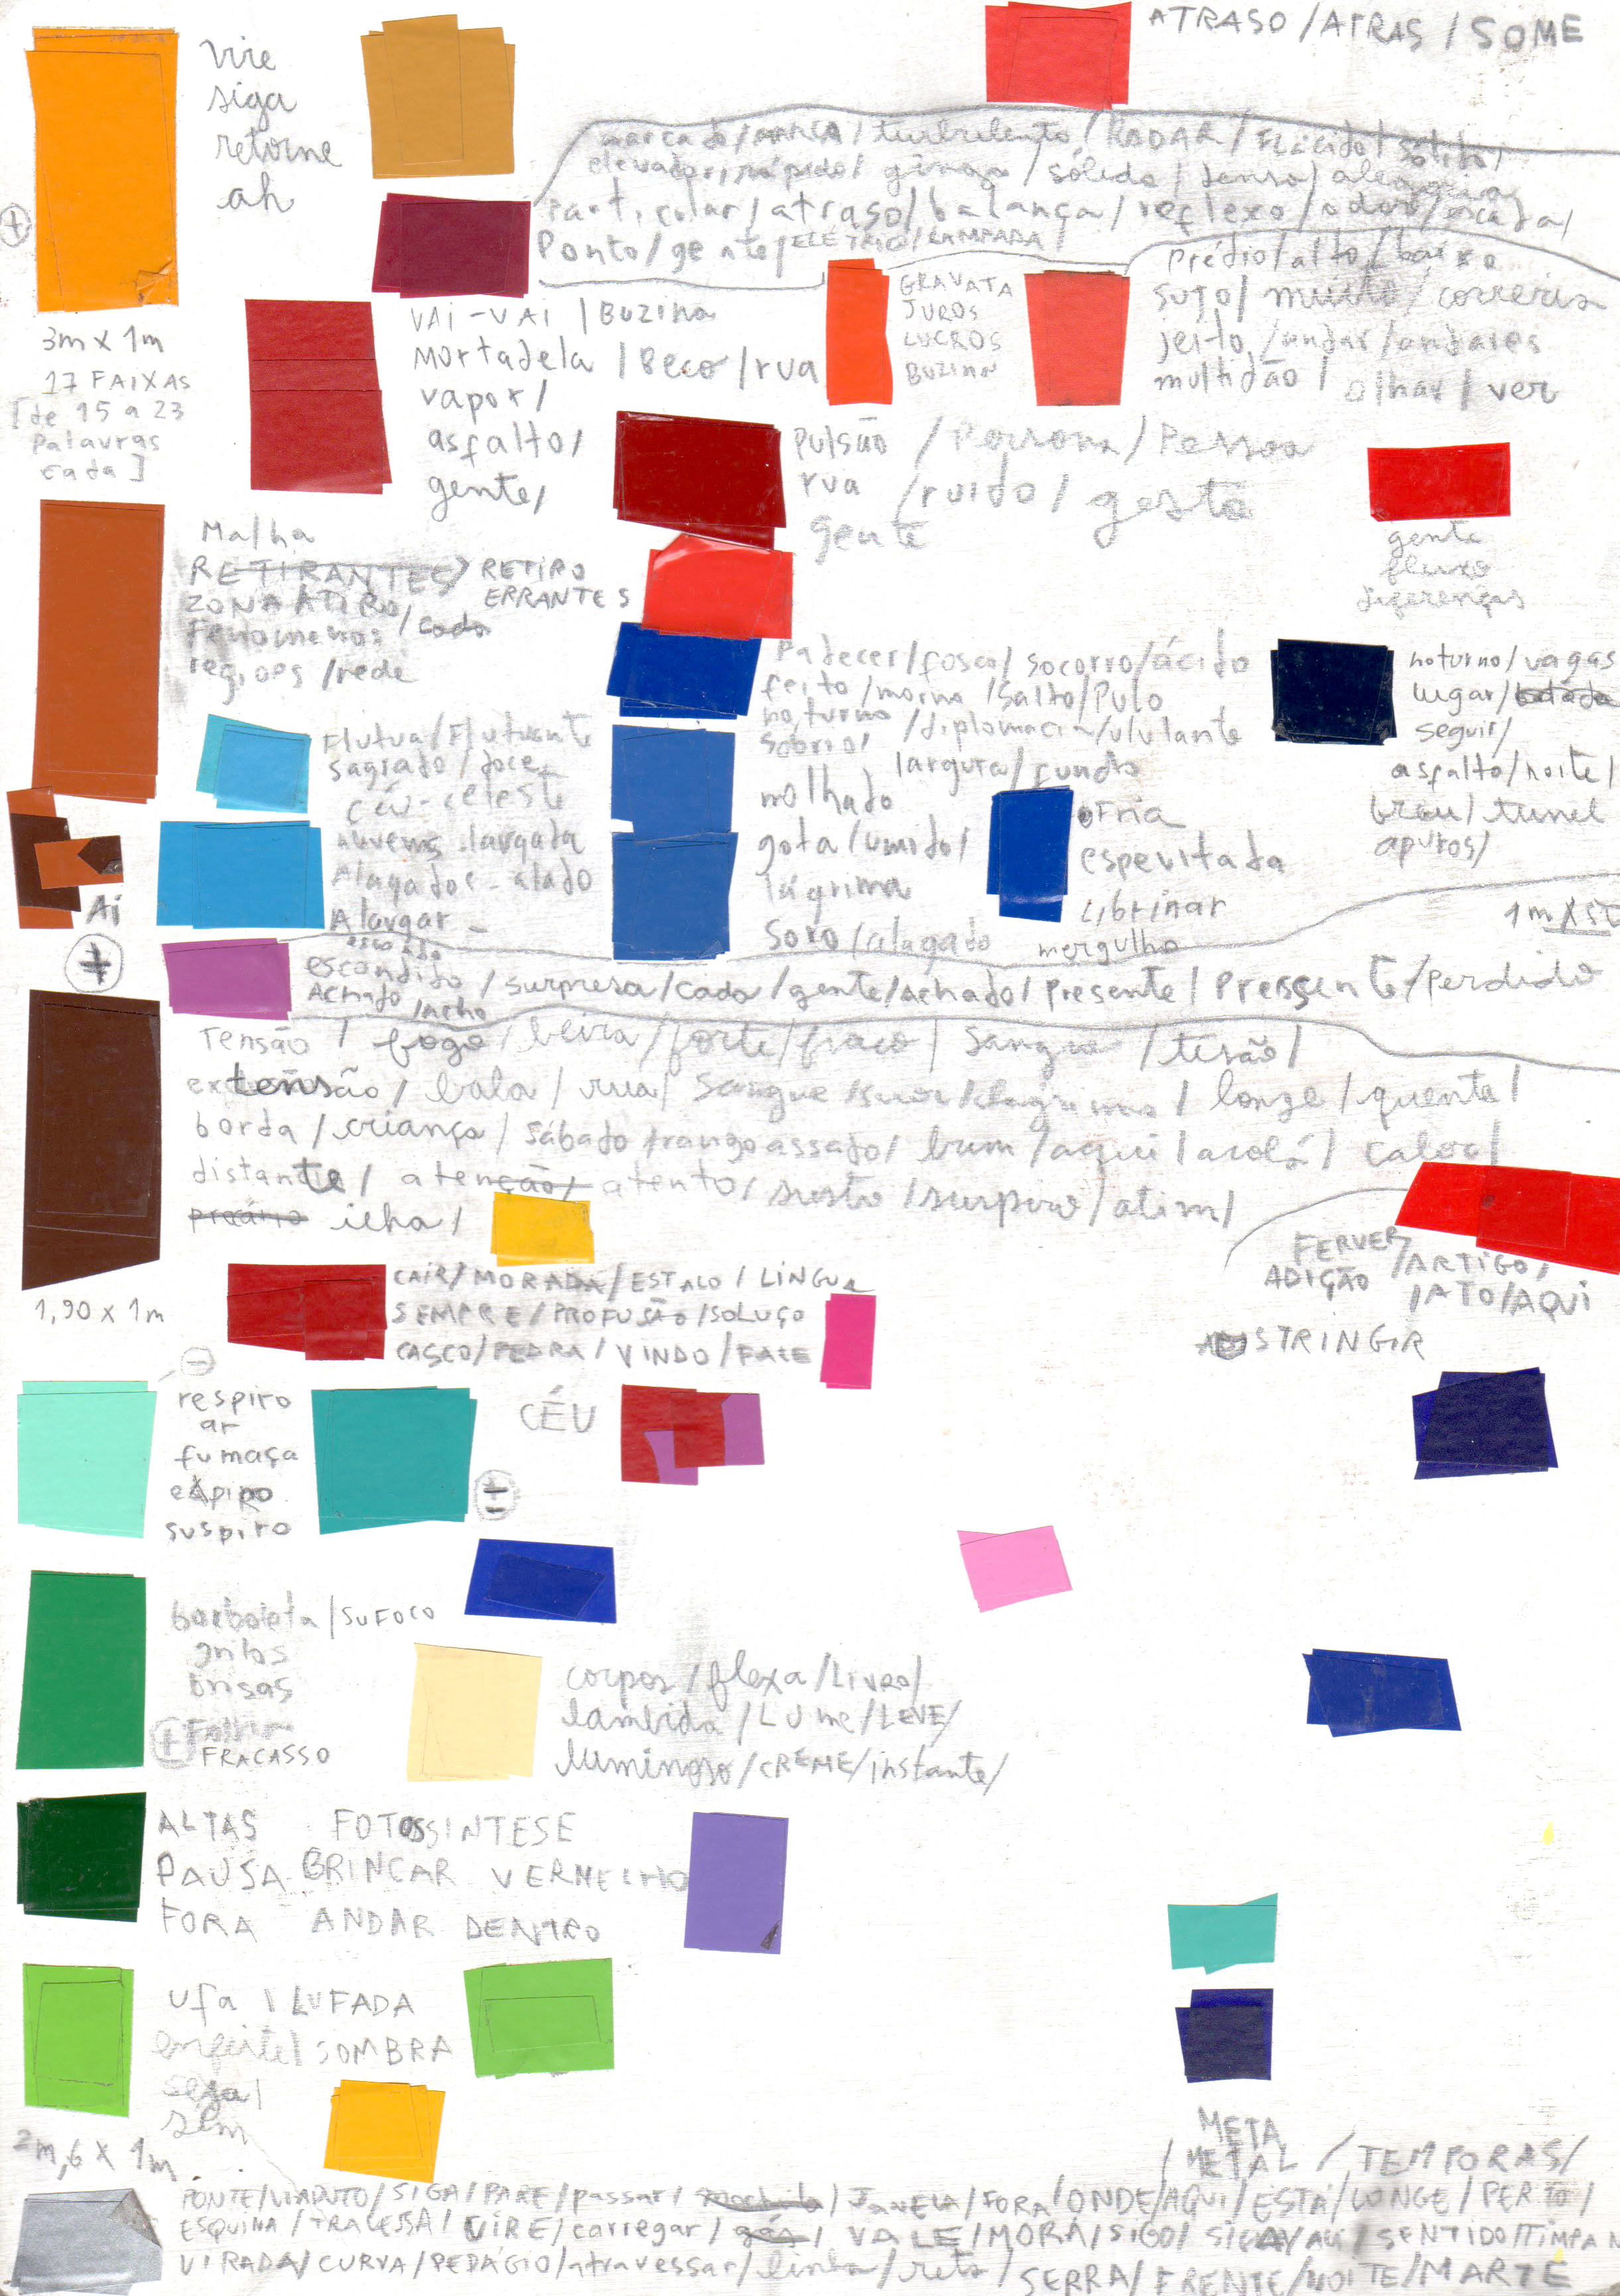 ATRASO / ATRAS / SOME
Vire
siga
retorne
ah
marcado / / turbulento / RADAR / FLácido / sólido /
elevador / rápido / ginga / sólido / denso / alegria
Particular / atraso / balança / reflexo / odor / escada /
Ponto / gente / ELÉTRICO / LAMPADA
Prédio / alto / baixo
sujo / muito / correria
jeito / andar / andares
multidão / olhar / ver
GRAVATA
JUROS
LUCROS
BUZINA
VAI-VAI / BUZINA
Mortadela / Beco / rua
vapor /
asfalto /
gente /
3m x 1m
17 FAIXAS
[de 15 a 23
palavras
cada]
Pulsão / Persona / Pessoa
rua / ruído / gesto
gente
gente
fluxo
diferenças
Malha
RETIRANTES RETIRO
ERRANTES
ZONA ATIRO
Fenomenos / cada
regiões / rede
Padecer / fosco / socorro / ácido
feito / morno / Salto / Pulo
noturno / diplomacia / ululante
sobrio /
largura / fundo
molhado
gota / umido /
lágrima
Soro / alagado
noturno / vagas
lugar /
seguir /
asfalto / noite /
breu / tunel
apuros /
Flutua / Flutuante
Sagrado / doce
céu - celeste
nuvens largada
Alagados - alado
Alargar -
Fria
espevitada
Librinar
mergulho
Ai
1m x
escondido / surpresa / cada / gente / Achado / presente / Pressente / Perdido
Achado / acho
Tensão / fogo / beira / forte / fraco / Sangue / tesão /
extensão / bala / rua / Sangue / suor / lagrima / longe / quente /
borda / criança / sábado frango assado / bum / aqui / acolá / calor /
distante / atenção / atento / susto / suspiro / atim /
ilha /
1,90 x 1m
CAIR / MORADA / ESTALO / LINGUA
SEMPRE / PROFUSÃO / SOLUÇO
CASCO / PEDRA / VINDO / FALE
FERVER / ARTIGO /
ADIÇÃO / ATO / AQUI
ADSTRINGIR
respiro
ar
fumaça
expiro
suspiro
CÉU
borboleta / SUFOCO
grilos
brisas
FRACASSO
corpos / flexa / LIVRO /
lambida / LUME / LEVE /
luminoso / CREME / instante /
ALTAS FOTOSSINTESE
PAUSA BRINCAR VERMELHO
FORA ANDAR DENTRO
ufa / LUFADA
enfeite / SOMBRA
seja /
sem
2m,6 x 1m
META
/ METAL / TEMPORAS /
PONTE / VIADUTO / SIGA / PARE / passar / mochila / JANELA / FORA / ONDE / AQUI / ESTÁ / LONGE / PERTO /
ESQUINA / TRAVESSA / VIRE / carregar / gás / VALE / MORA / SIGO / SIGA / AQUI / SENTIDO / TIMPAN
VIRADA / CURVA / PEDÁGIO / atravessar / linha / reta / SERRA / FRENTE / NOITE / MARTE